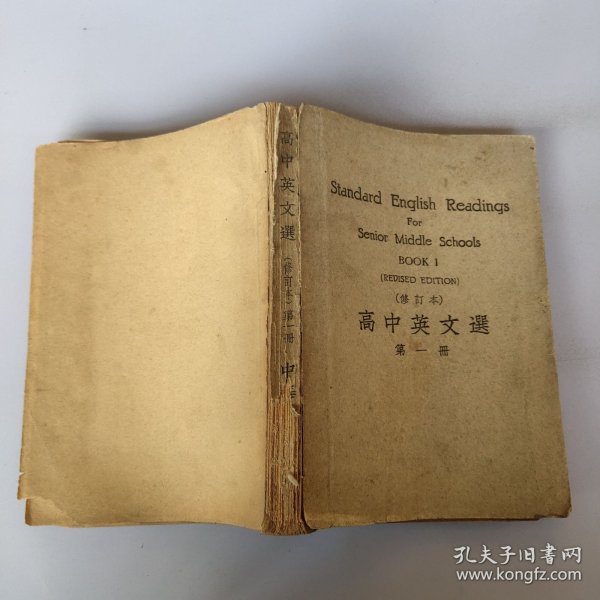 高中英文選
(修訂本)
第一冊
中
Standard English Readings
For
Senior Middle Schools
BOOK 1
(REVISED EDITION)
(修訂本)
高中英文選
第一冊
孔夫子旧书网
www.kongfz.com